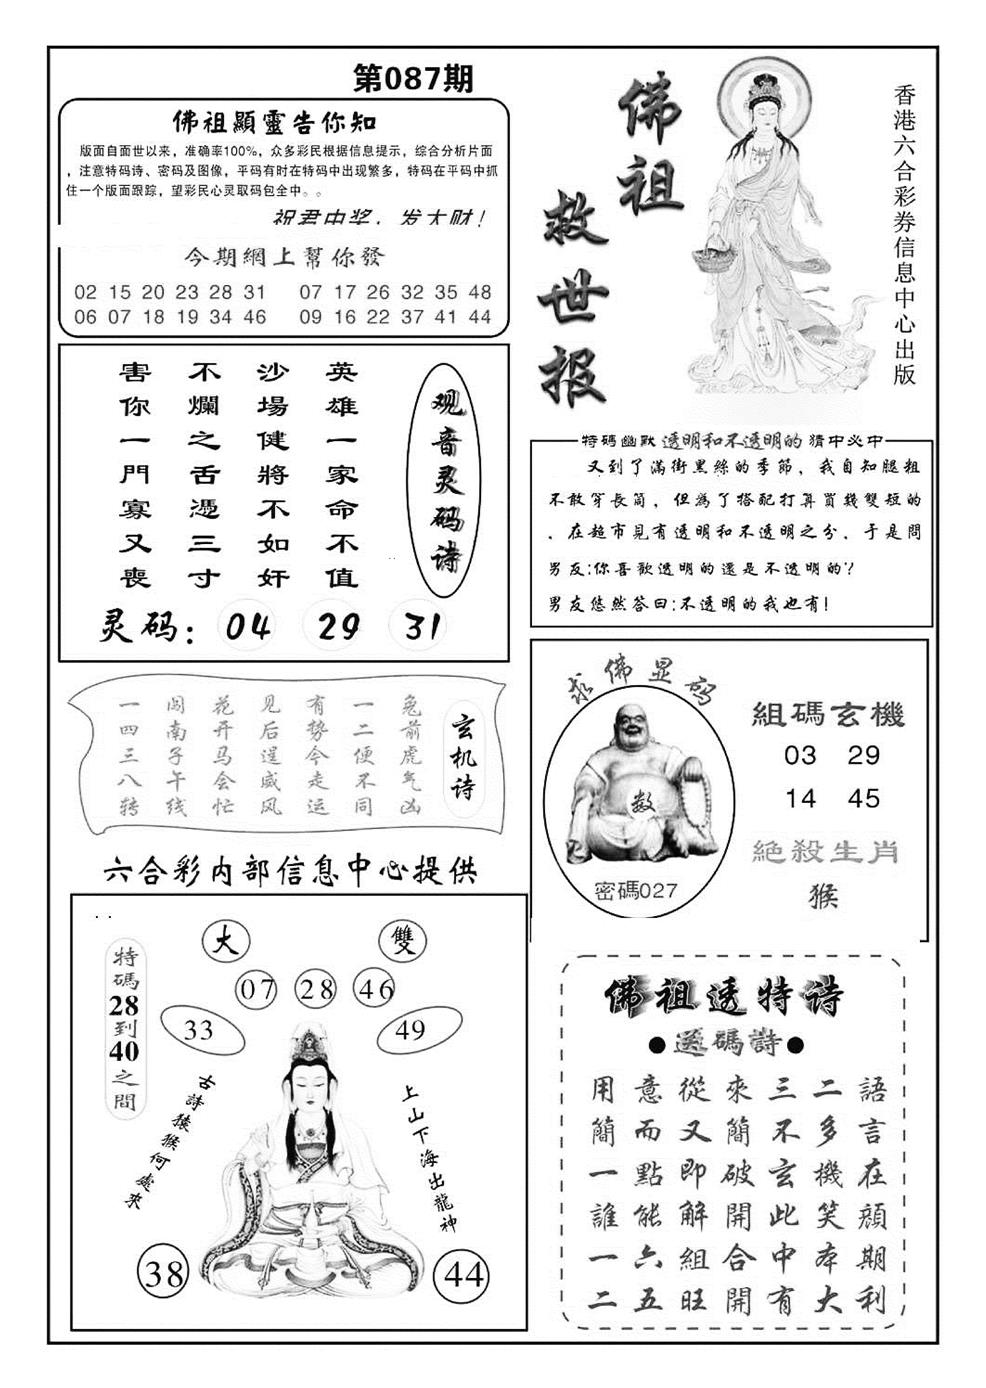 第087期
佛祖顯靈告你知
版面自面世以来，准确率100%，众多彩民根据信息提示，综合分析片面
，注意特码诗、密码及图像，平码有时在特码中出现繁多，特码在平码中抓
住一个版面跟踪，望彩民心灵取码包全中。。
祝君中奖，发大财！
今期網上幫你發
02 15 20 23 28 31 07 17 26 32 35 48
06 07 18 19 34 46 09 16 22 37 41 44
佛祖
救世报
香港六合彩券信息中心出版
观音灵码诗
英雄一家命不值
沙場健將不如奸
不爛之舌憑三寸
害你一門寡又喪
灵码：04 29 31
特碼幽默 透明和不透明的 猜中必中
又到了滿街黑絲的季節，我自知腿粗
不敢穿長筒，但為了搭配打算買幾雙短的
，在超市見有透明和不透明之分，于是問
男友:你喜歡透明的還是不透明的?
男友悠然答曰:不透明的我也有!
玄机诗
兔前虎气凶
一二便不同
有势今走运
见后逞威风
花开马会忙
闯南子午线
一四三八转
求佛显码
数
密碼027
組碼玄機
03 29
14 45
絕殺生肖
猴
六合彩内部信息中心提供
大
雙
07 28 46
33
49
特碼28到40之間
古詩猿猴何處來
上山下海出龍神
38
44
佛祖透特诗
●送碼詩●
用意從來三二語
簡而又簡不多言
一點即破玄機在
誰能解開此笑顔
一六組合中本期
二五旺開有大利